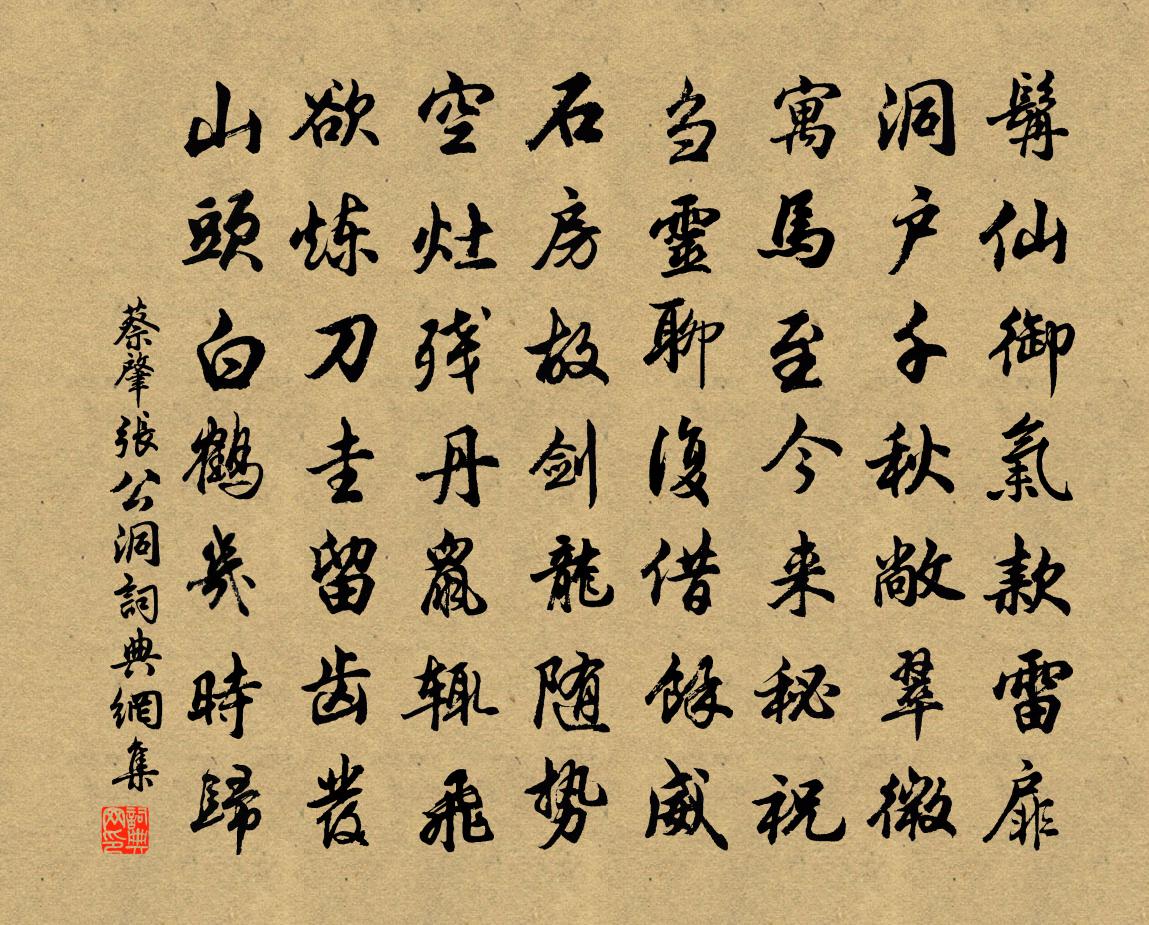 髯仙御氣款雷扉
洞户千秋敞翠微
寓馬至今来秘祝
刍靈聊復借餘威
石房故剑龍随势
空灶残丹鼠辄飛
欲炼刀圭留齿發
山頭白鶴幾時歸
蔡肇張公洞詞典網集
詞典网印